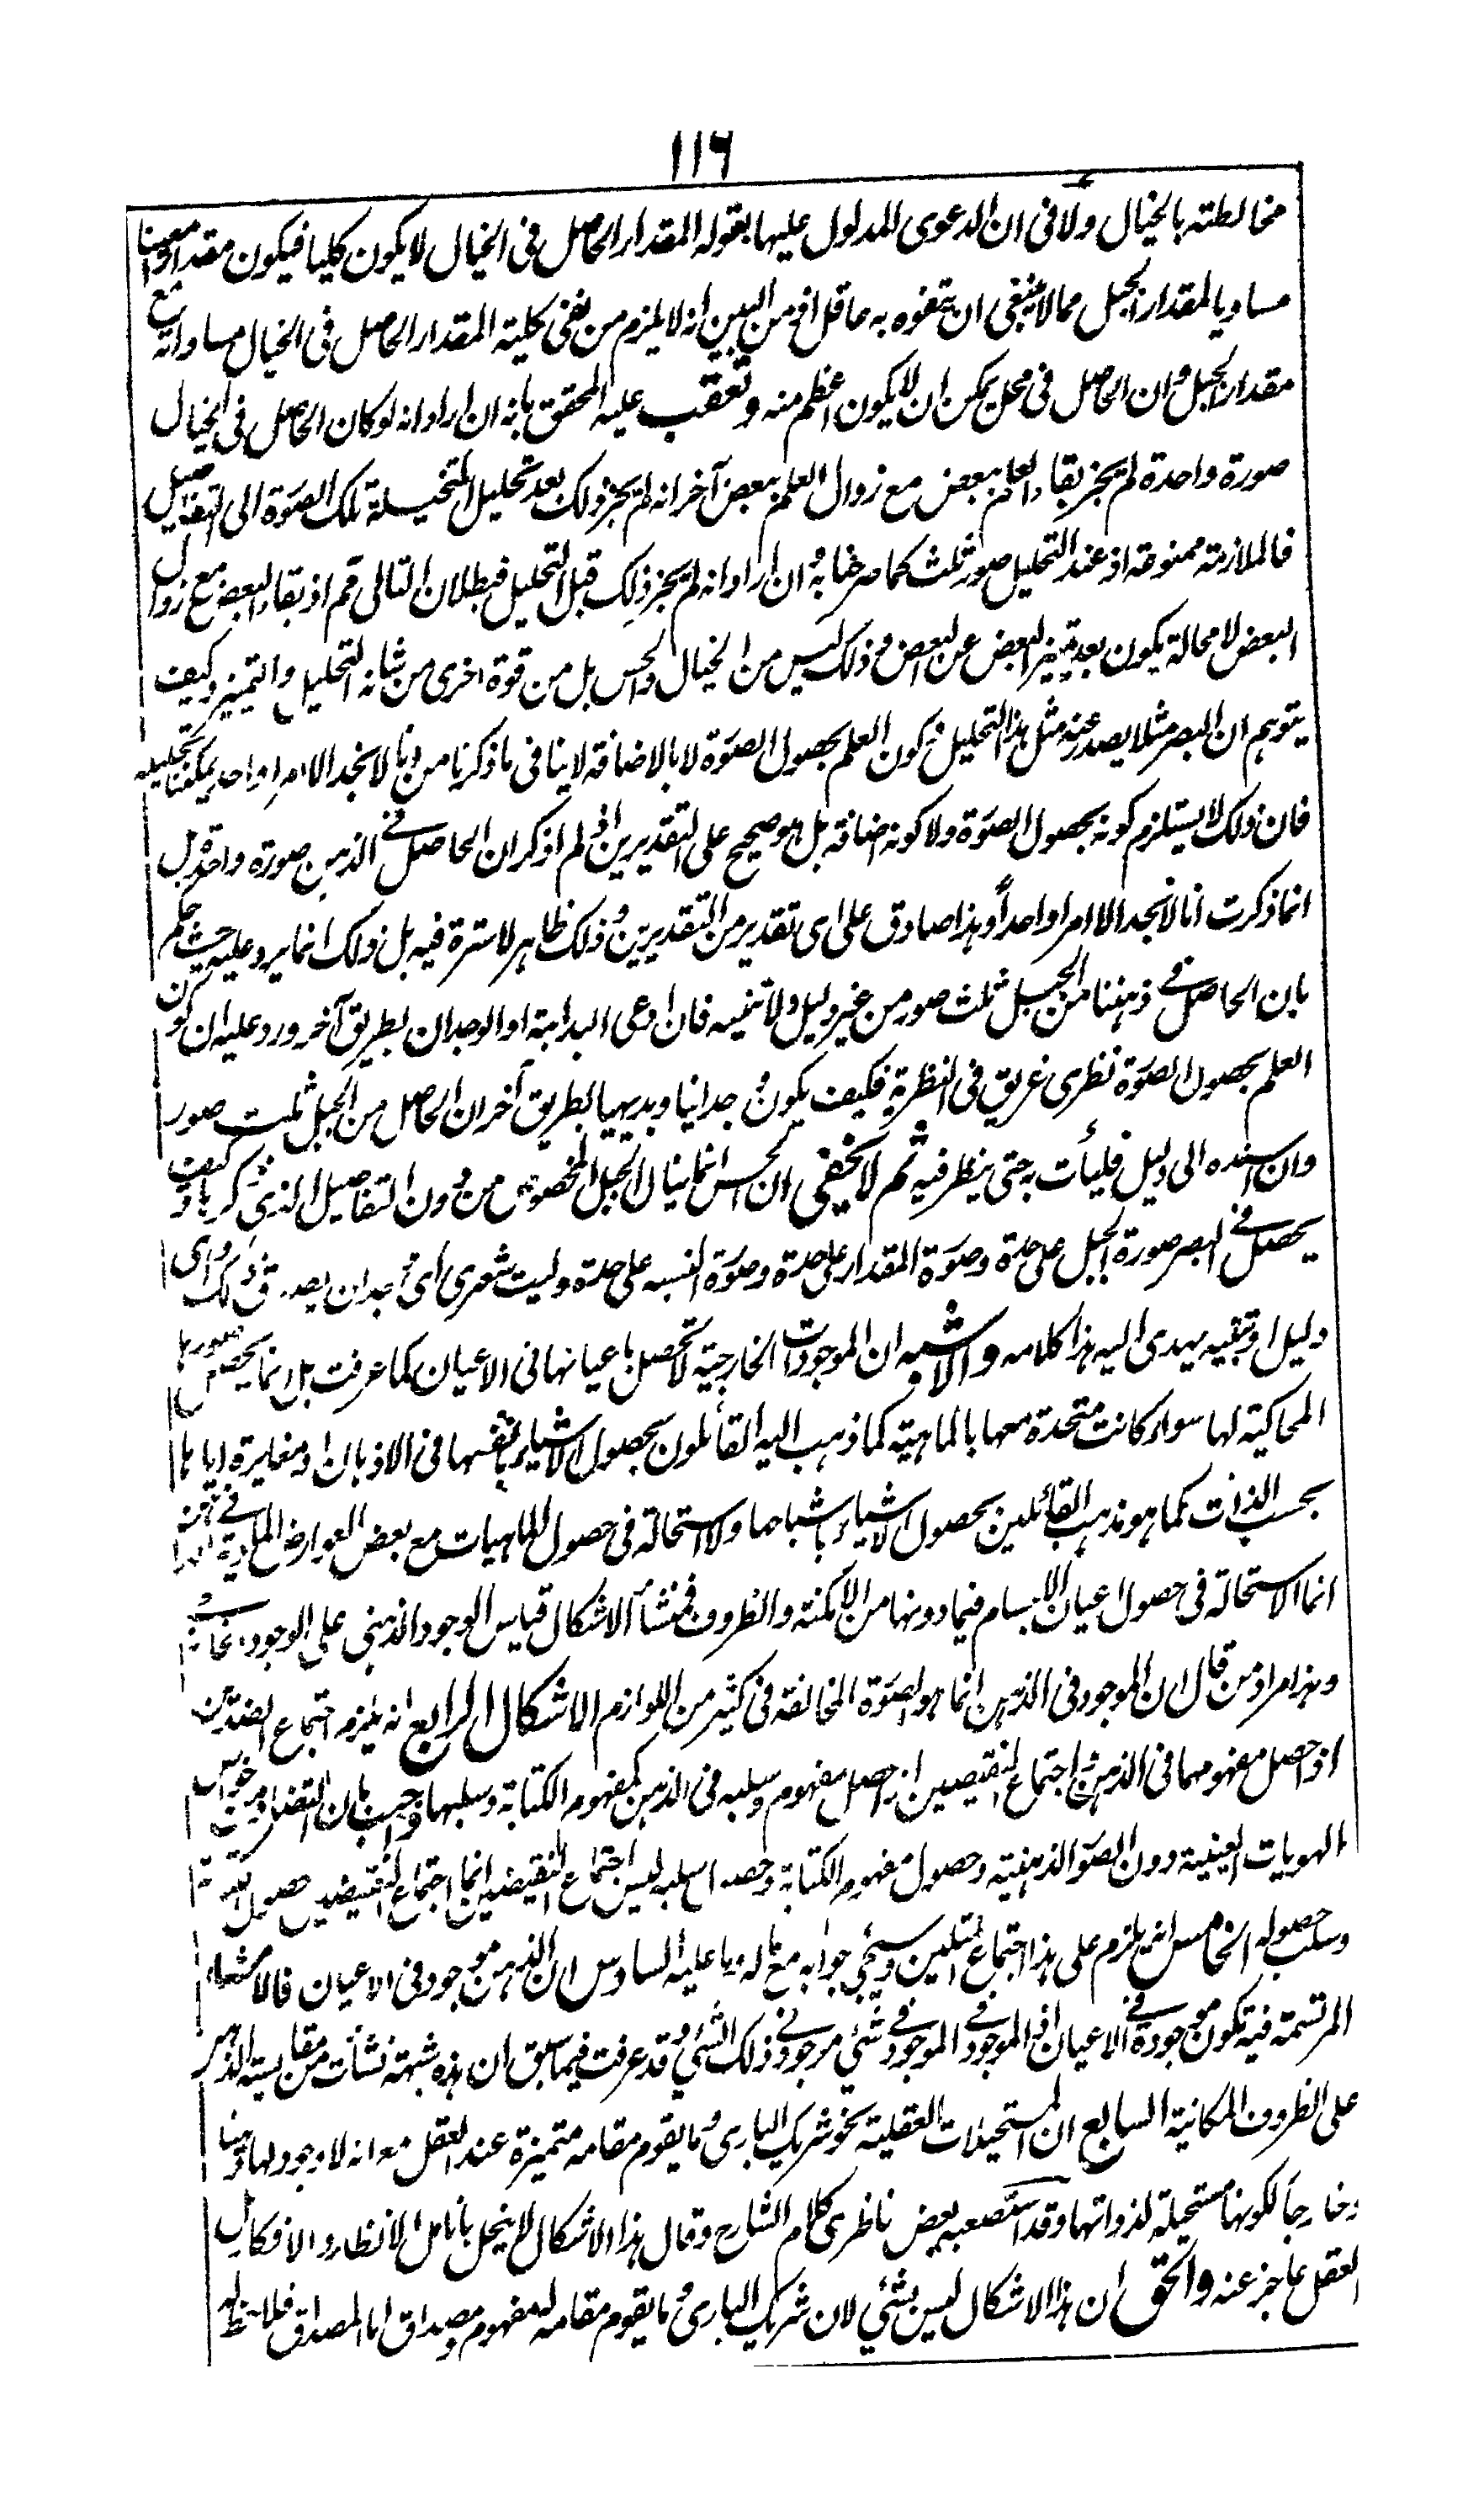 ١١٦
مخالطته بالخيال ولا فى ان الدعوى المدلول عليها بقوله المقدار الحاصل فى الخيال لا يكون كليا فيكون مقدارا معينا
مساويا لمقدار الجبل مما لا ينبغى ان يتفوه به عاقل اذ من البين انه لا يلزم من نفى كلية المقدار الحاصل فى الخيال مساواته مع
مقدار الجبل وان الحاصل فى محل يمكن ان لا يكون اعظم منه وتعقب عليه المحقق بانه ان اراد انه لو كان الحاصل فى الخيال
صورة واحدة لم يجز بقاء العلم ببعض مع زوال العلم ببعض آخر انه لم يجز ذلك بعد تحليل المتخيلة تلك الصورة الى التفاصيل
فالملازمة ممنوعة اذ عند التحليل صور ثلث كما صرحنا به وان اراد انه لم يجز ذلك قبل التحليل فبطلان التالى مم اذ بقاء البعض مع زوال
البعض لا محالة يكون بعد تميز البعض عن البعض وذلك ليس من الخيال والحس بل من قوة اخرى من شانه التحليل والتميز وكيف
يتوهم ان البصر مثلا يصدر عنه مثل هذا التحليل وكون العلم بحصول الصورة لا بالاضافة لا ينافى ما ذكرنا من انا لا نجد الا امرا واحدا يمكننا تحليله
فان ذلك لا يستلزم كونه بحصول الصورة ولا كونه اضافة بل هو صحيح على التقديرين اذ لم اذكر ان الحاصل فى الذهن صورة واحدة بل
انما ذكرت انا لا نجد الا امرا واحداً وهذا صادق على اى تقدير من التقديرين وذلك ظاهر لا سترة فيه بل ذلك انما يرد عليه حيث حكم
بان الحاصل فى ذهننا من الجبل ثلث صور من غير دليل ولا تنبيه فان ادعى البداهة او الوجدان بطريق آخر ورد عليه ان كون
العلم بحصول الصورة نظرى غريق فى النظرية فكيف يكون وجدانيا وبديهيا بطريق آخر ان الحاصل من الجبل ثلث صور
وان اسنده الى دليل فليأت به حتى ينظر فيه ثم لا يخفى ان الحس انما ينال الجبل المخصوص من دون التفاصيل الذى ذكرها وكيف
يحصل فى البصر صورة الجبل على حدة وصورة المقدار على حدة وصورة النسبه على حدة وليت شعرى اى وجدان يصدق ذلك واى
دليل او تنبيه يهدى اليه هذا كلامه والاشبه ان الموجودات الخارجية لا تحصل باعيانها فى الاعيان كما عرفت بل انما يحصل صورها
المحاكية لها سواء كانت متحدة معها بالماهية كما ذهب اليه القائلون بحصول الاشياء بانفسها فى الاذهان او مغايرة اياها
بحسب الذات كما هو مذهب القائلين بحصول الاشياء باشباحها ولا استحالة فى حصول الماهيات مع بعض العوارض المادية فى
انما الاستحالة فى حصول اعيان الاجسام فيما دونها من الامكنة والظروف فمنشأ الاشكال قياس الوجود الذهنى على الوجود
وهذا مراد من قال ان الموجود فى الذهن انما هو الصورة المخالفة فى كثير من اللوازم الاشكال الرابع انه يلزم اجتماع الضدين
اذا حصل مفهومهما فى الذهن بل اجتماع النقيضين ان حصل مفهوم وسلبه فى الذهن كمفهوم الكتابة وسلبها واجيب بان التضاد من خواص
الهويات العينية دون الصور الذهنية وحصول مفهوم الكتابة وحصول سلبه ليس اجتماع النقيضين انما اجتماع النقيضين حصول
وسلب حصوله الخامس انه يلزم على هذا اجتماع المثلين وسيجئ جوابه مع ماله وما عليه السادس ان الذهن موجود فى الاعيان فالاشياء
المرتسمة فيه تكون موجودة فى الاعيان اذ الموجود فى الموجود فى شئ موجود فى ذلك الشئ وقد عرفت فيما سبق ان هذه شبهة نشأت من مقايسة الذهن
على الظروف المكانية السابع ان المستحيلات العقلية نحو شريك البارى وما يقوم مقامه متميزة عند العقل مع انه لا وجود لها ذهنا
وخارجاً لكونها مستحيلة لذواتها وقد استصعبه بعض ناظرى كلام الشارح وقال هذا الاشكال لا ينحل بانامل الانظار والافكار بل
العقل عاجز عنه والحق ان هذا الاشكال ليس بشئ لان شريك البارى وما يقوم مقامه له مفهوم ومصداق اما المصداق فلا